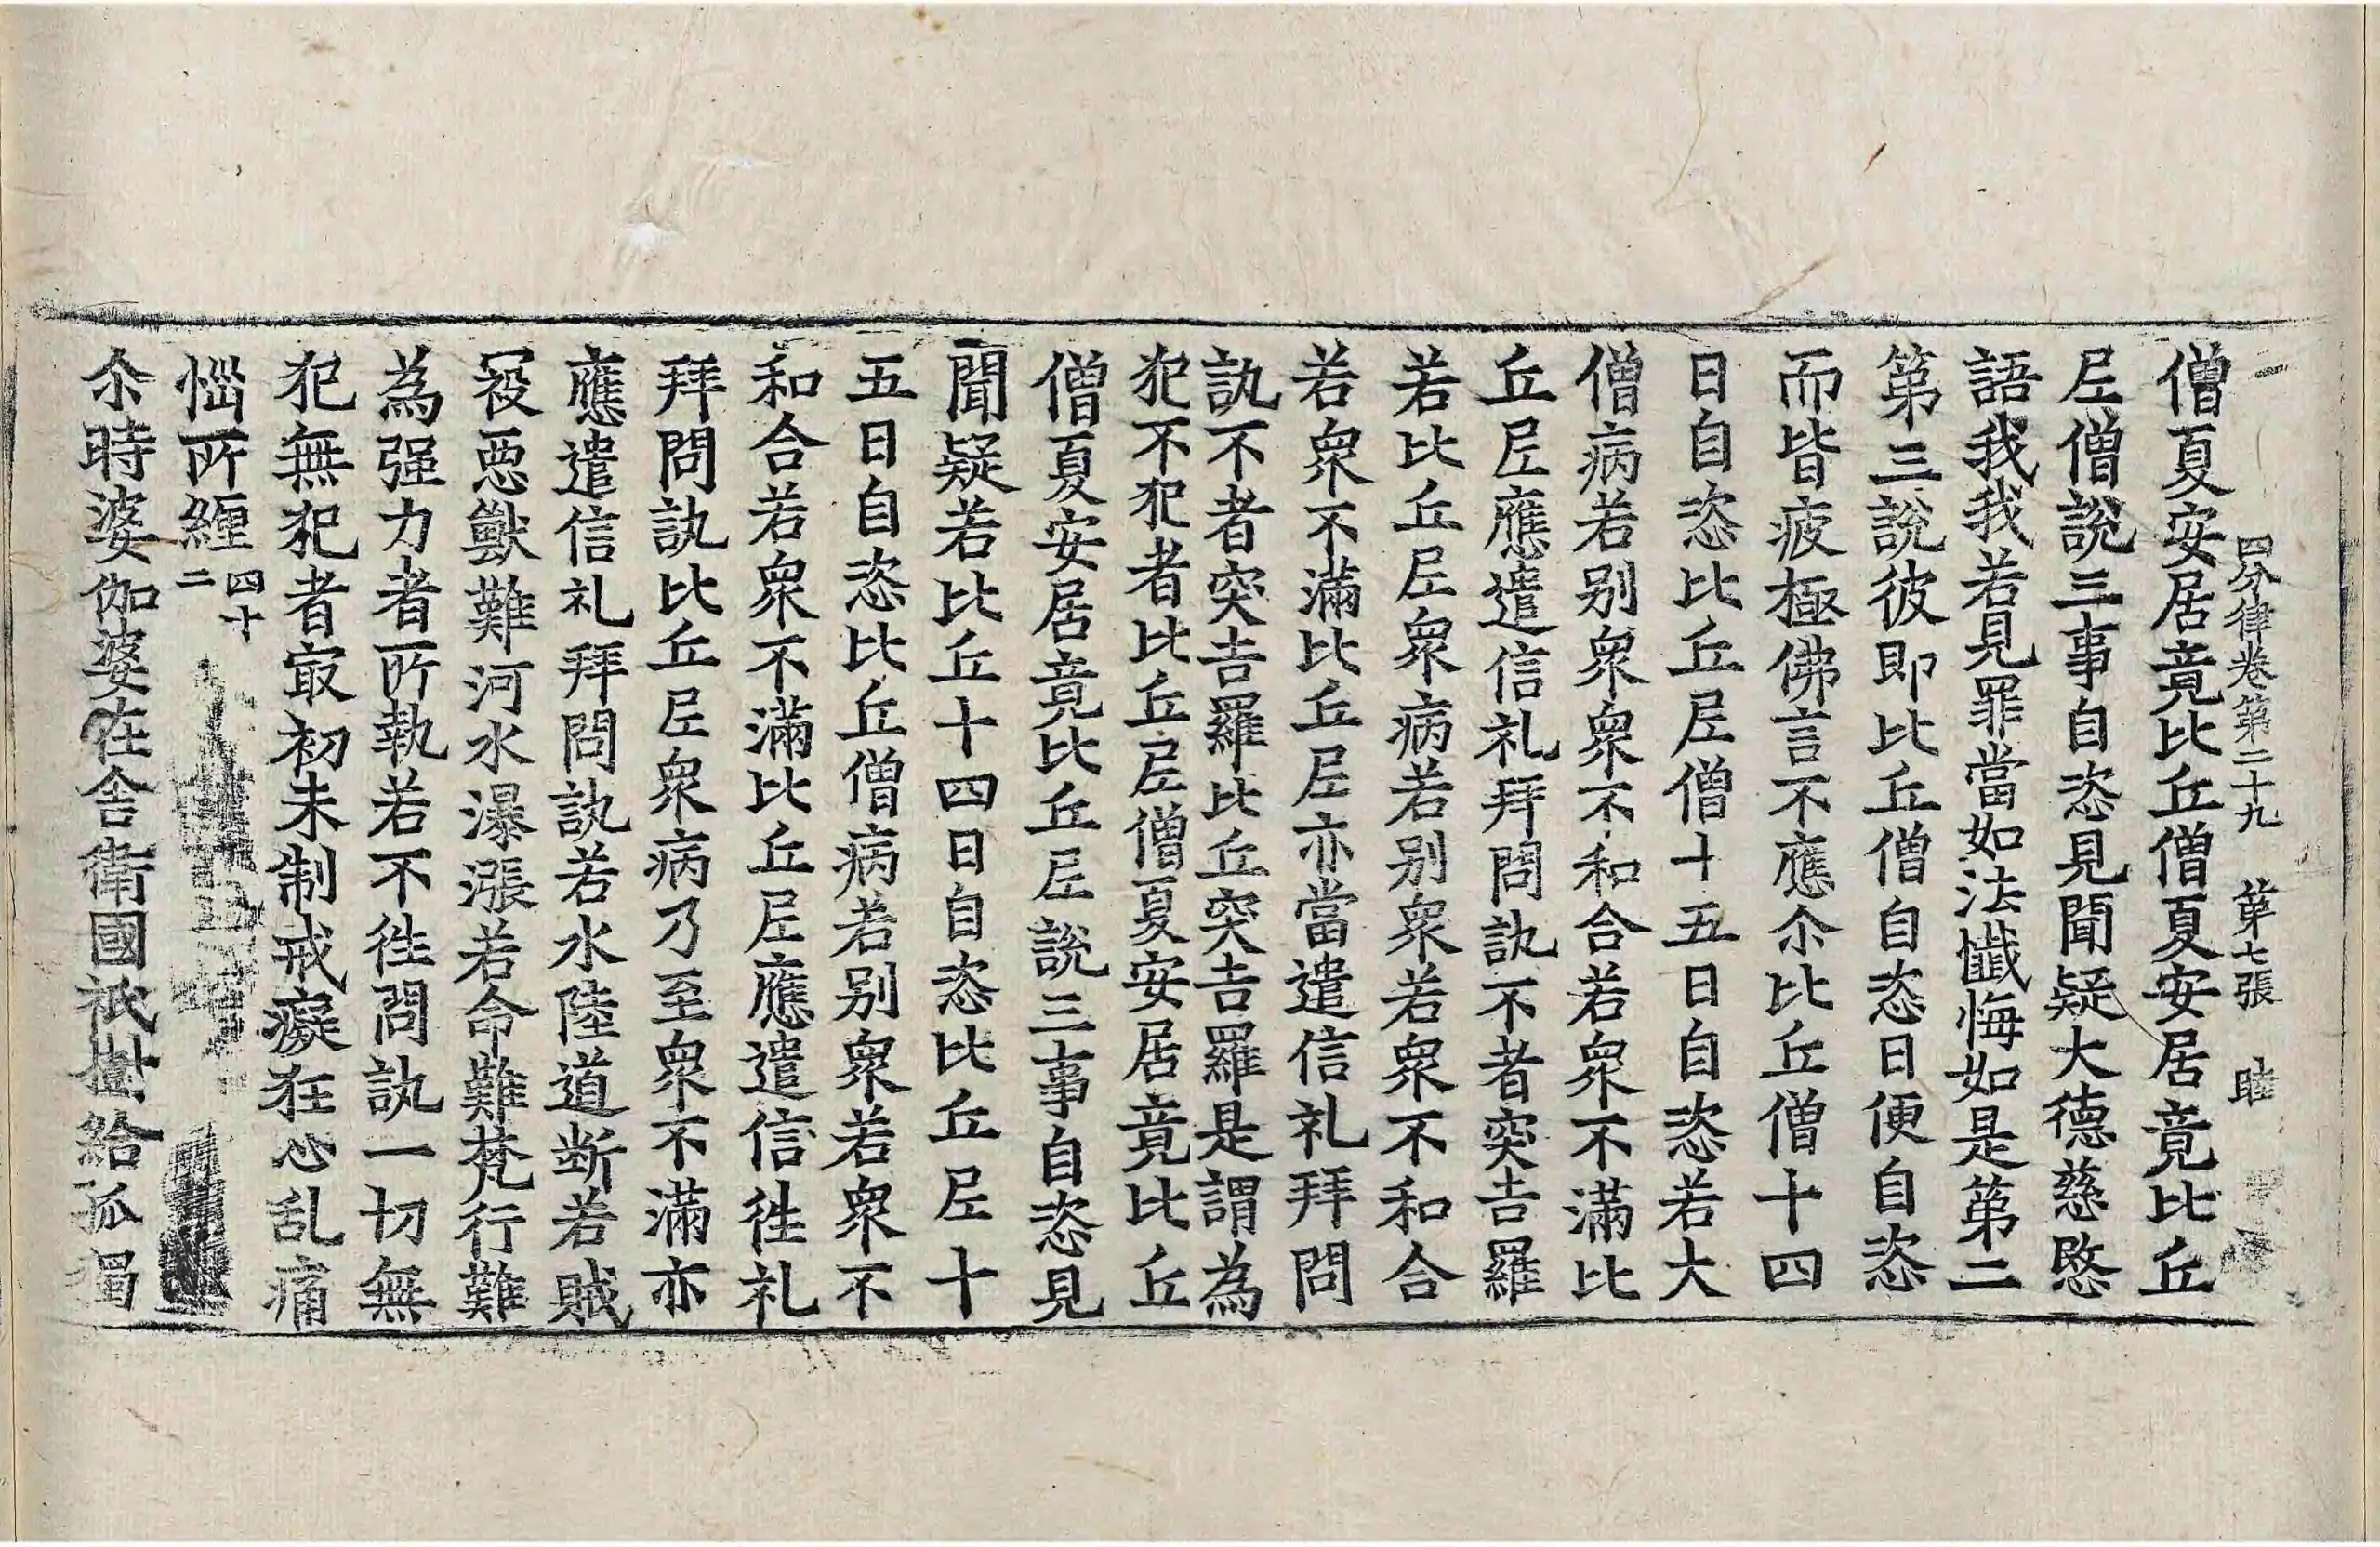 四分律卷第二十九 第七張 睦
僧夏安居竟比丘僧夏安居竟比丘
𡰱僧說三事自恣見聞疑大德慈愍
語我我若見罪當如法懺悔如是第二
第三說彼即比丘僧自恣日便自恣
而皆疲極佛言不應尒比丘僧十四
日自恣比丘𡰱僧十五日自恣若大
僧病若別衆衆不和合若衆不滿比
丘𡰱應遣信礼拜問訊不者突吉羅
若比丘𡰱衆病若別衆若衆不和合
若衆不滿比丘𡰱亦當遣信礼拜問
訊不者突吉羅比丘突吉羅是謂為
犯不犯者比丘𡰱僧夏安居竟比丘
僧夏安居竟比丘𡰱說三事自恣見
聞疑若比丘十四日自恣比丘𡰱十
五日自恣比丘僧病若別衆若衆不
和合若衆不滿比丘𡰱應遣信徃礼
拜問訊比丘𡰱衆病乃至衆不滿亦
應遣信礼拜問訊若水陸道断若賊
冦惡獸難河水瀑漲若命難梵行難
為强力者所執若不徃問訊一切無
犯無犯者㝡初未制戒癡狂心乱痛
惱所纏四十二
尒時婆伽婆在舍衛國祇樹給孤獨